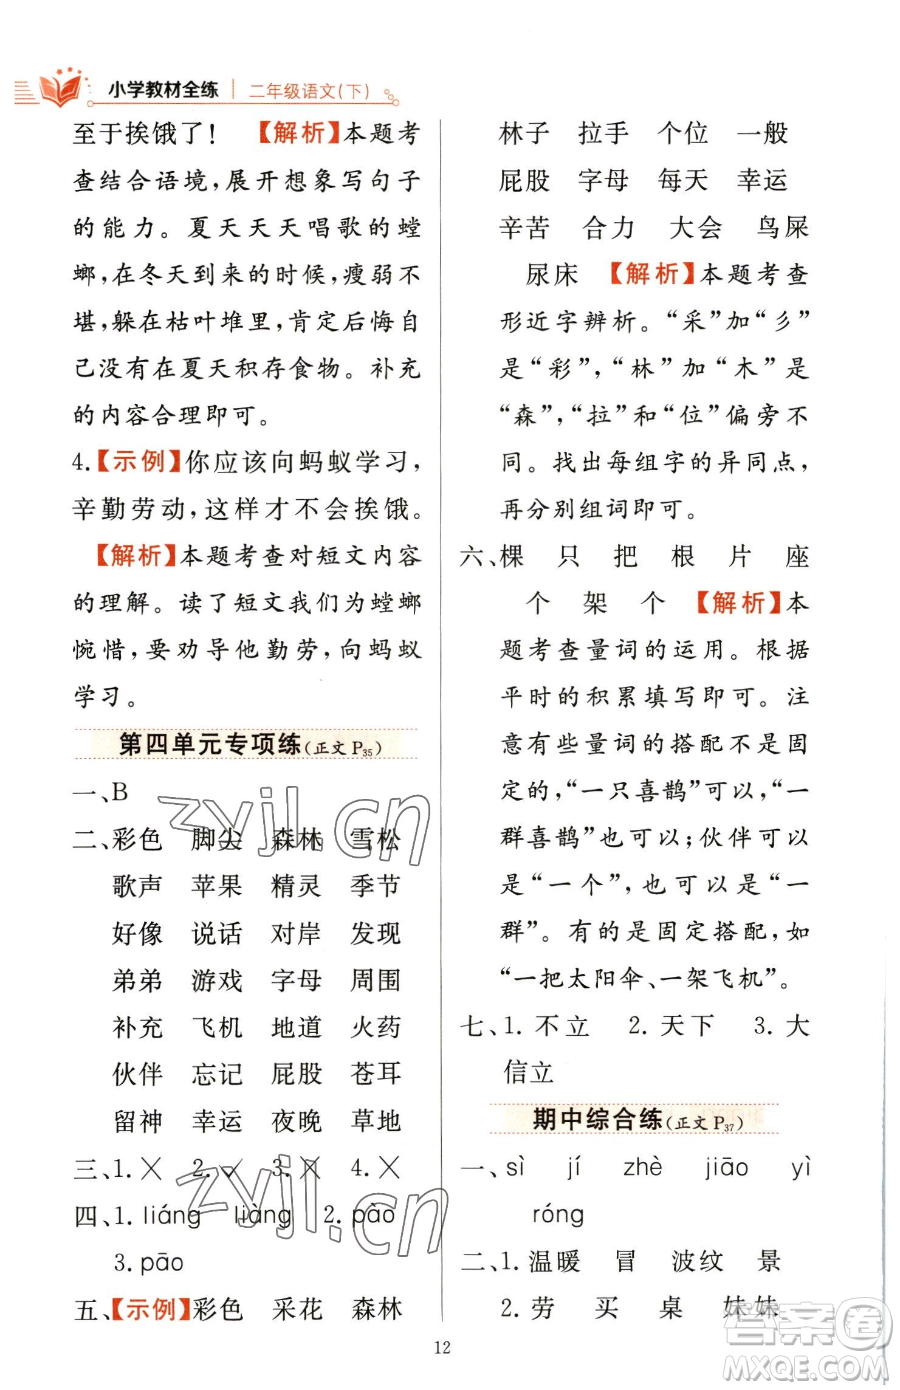 小学教材全练 二年级语文(下)
至于挨饿了! 【解析】本题考
查结合语境,展开想象写句子
的能力。夏天天天唱歌的螳
螂,在冬天到来的时候,瘦弱不
堪,躲在枯叶堆里,肯定后悔自
己没有在夏天积存食物。补充
的内容合理即可。
4.【示例】你应该向蚂蚁学习,
辛勤劳动,这样才不会挨饿。
【解析】本题考查对短文内容
的理解。读了短文我们为螳螂
惋惜,要劝导他勤劳,向蚂蚁
学习。
第四单元专项练(正文 P35)
一、B
二、彩色 脚尖 森林 雪松
歌声 苹果 精灵 季节
好像 说话 对岸 发现
弟弟 游戏 字母 周围
补充 飞机 地道 火药
伙伴 忘记 屁股 苍耳
留神 幸运 夜晚 草地
三、1.× 2.✓ 3.× 4.×
四、1.liáng liàng 2.pào
3.pāo
五、【示例】彩色 采花 森林
林子 拉手 个位 一般
屁股 字母 每天 幸运
辛苦 合力 大会 鸟屎
尿床 【解析】本题考查
形近字辨析。“采”加“彡”
是“彩”,“林”加“木”是
“森”,“拉”和“位”偏旁不
同。找出每组字的异同点,
再分别组词即可。
六、棵 只 把 根 片 座
个 架 个 【解析】本
题考查量词的运用。根据
平时的积累填写即可。注
意有些量词的搭配不是固
定的,“一只喜鹊”也可以“一
群喜鹊”也可以;伙伴可以
是“一个”,也可以是“一
群”。有的是固定搭配,如
“一把太阳伞、一架飞机”。
七、1.不立 2.天下 3.大
信立
期中综合练(正文 P37)
一、sì jí zhè jiāo yì
róng
二、1.温暖 冒 波纹 景
2.劳 买 桌 妹妹
12
zyjl.cn
zyjl.cn
答案圈
MXQE.COM